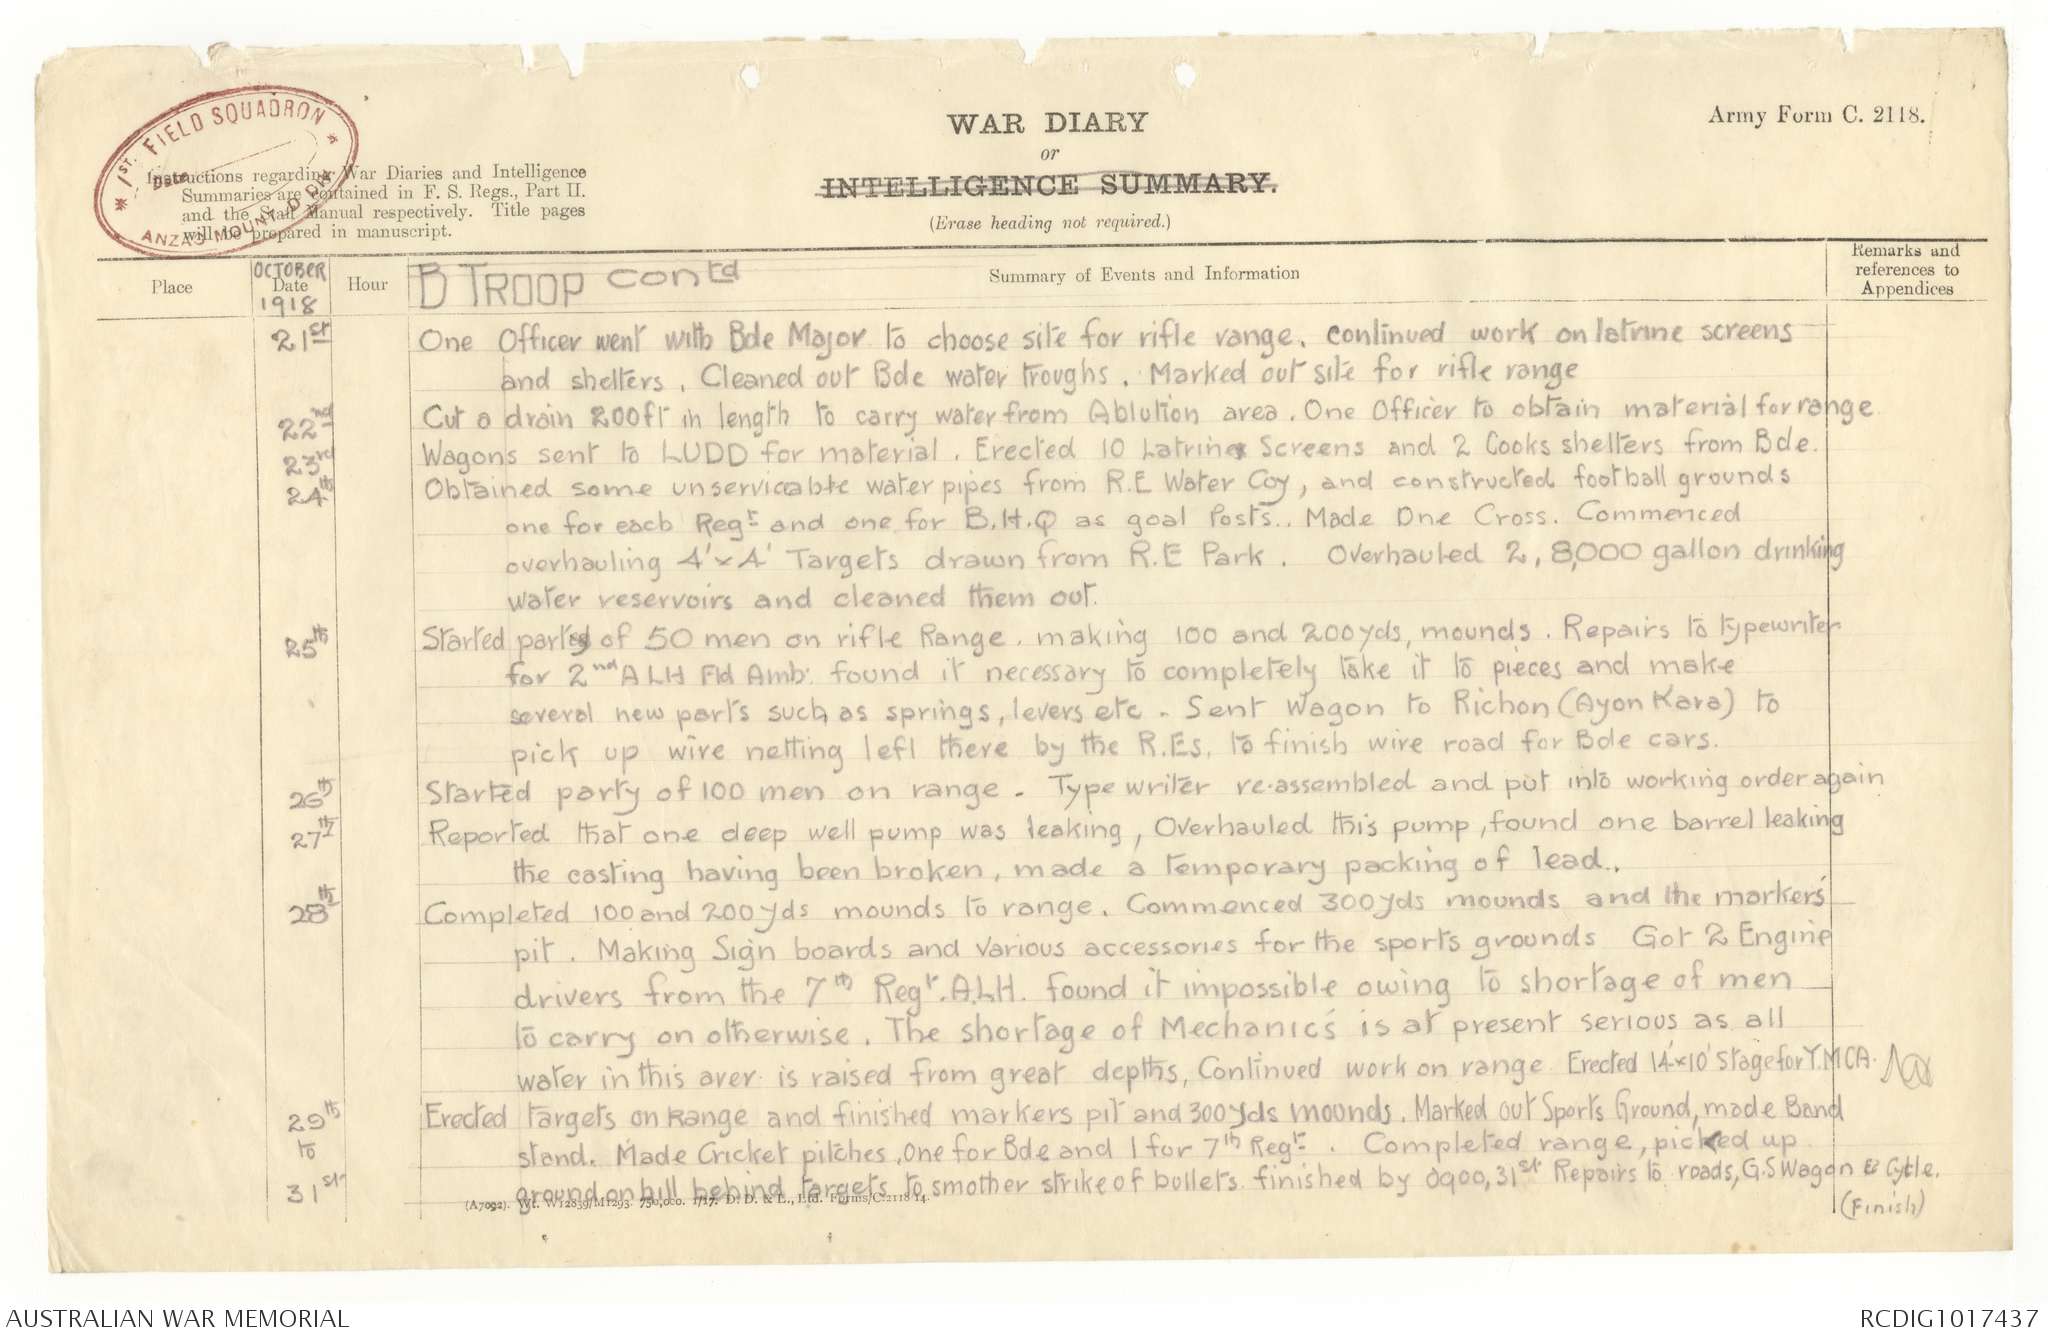 1ST. FIELD SQUADRON
Date
ANZAC MOUNTD DIV
Army Form C. 2118.
WAR DIARY
or
INTELLIGENCE SUMMARY.
(Erase heading not required.)
Instructions regarding War Diaries and Intelligence
Summaries are contained in F. S. Regs., Part II.
and the Staff Manual respectively. Title pages
will be prepared in manuscript.
Place
OCTOBER
Date
1918
Hour
B TROOP contd
Summary of Events and Information
Remarks and
references to
Appendices
21st One Officer went with Bde Major to choose site for rifle range. continued work on latrine screens
and shelters. Cleaned out Bde water troughs. Marked out site for rifle range
22nd Cut a drain 200ft in length to carry water from Ablution area. One Officer to obtain material for range
23rd Wagons sent to LUDD for material. Erected 10 Latrine Screens and 2 Cooks shelters from Bde.
24th Obtained some unserviceable water pipes from R.E Water Coy, and constructed football grounds
one for each Regt and one for B.H.Q as goal Posts. Made One Cross. Commenced
overhauling 4'x4' Targets drawn from R.E Park. Overhauled 2, 8,000 gallon drinking
water reservoirs and cleaned them out.
25th Started party of 50 men on rifle Range. making 100 and 200yds, mounds. Repairs to typewriter
for 2nd ALH Fld Amb. found it necessary to completely take it to pieces and make
several new parts such as springs, levers etc. Sent Wagon to Richon (Ayon Kara) to
pick up wire netting left there by the R.Es. to finish wire road for Bde cars.
26th Started party of 100 men on range. Type writer re-assembled and put into working order again
27th Reported that one deep well pump was leaking, Overhauled this pump, found one barrel leaking
the casting having been broken, made a temporary packing of lead.
28th Completed 100 and 200yds mounds to range. Commenced 300yds mounds and the markers'
pit. Making Sign boards and various accessories for the sports grounds Got 2 Engine
drivers from the 7th Regt. A.L.H. found it impossible owing to shortage of men
to carry on otherwise. The shortage of Mechanics is at present serious as all
water in this aver is raised from great depths, Continued work on range Erected 14'x10' Stage for Y.M.C.A.
29th Erected targets on Range and finished markers pit and 300yds mounds. Marked out Sports Ground, made Band
to stand. Made Cricket pitches, One for Bde and 1 for 7th Regt. Completed range, picked up
31st ground on hill behind targets to smother strike of bullets. finished by 0900, 31st Repairs to roads, G.S Wagon & Cycle.
(Finish)
(A7092). Wt. W12839/M1293. 750,000. 1/17. D. D. & L., Ltd. Forms/C.2118/14.
AUSTRALIAN WAR MEMORIAL
RCDIG1017437